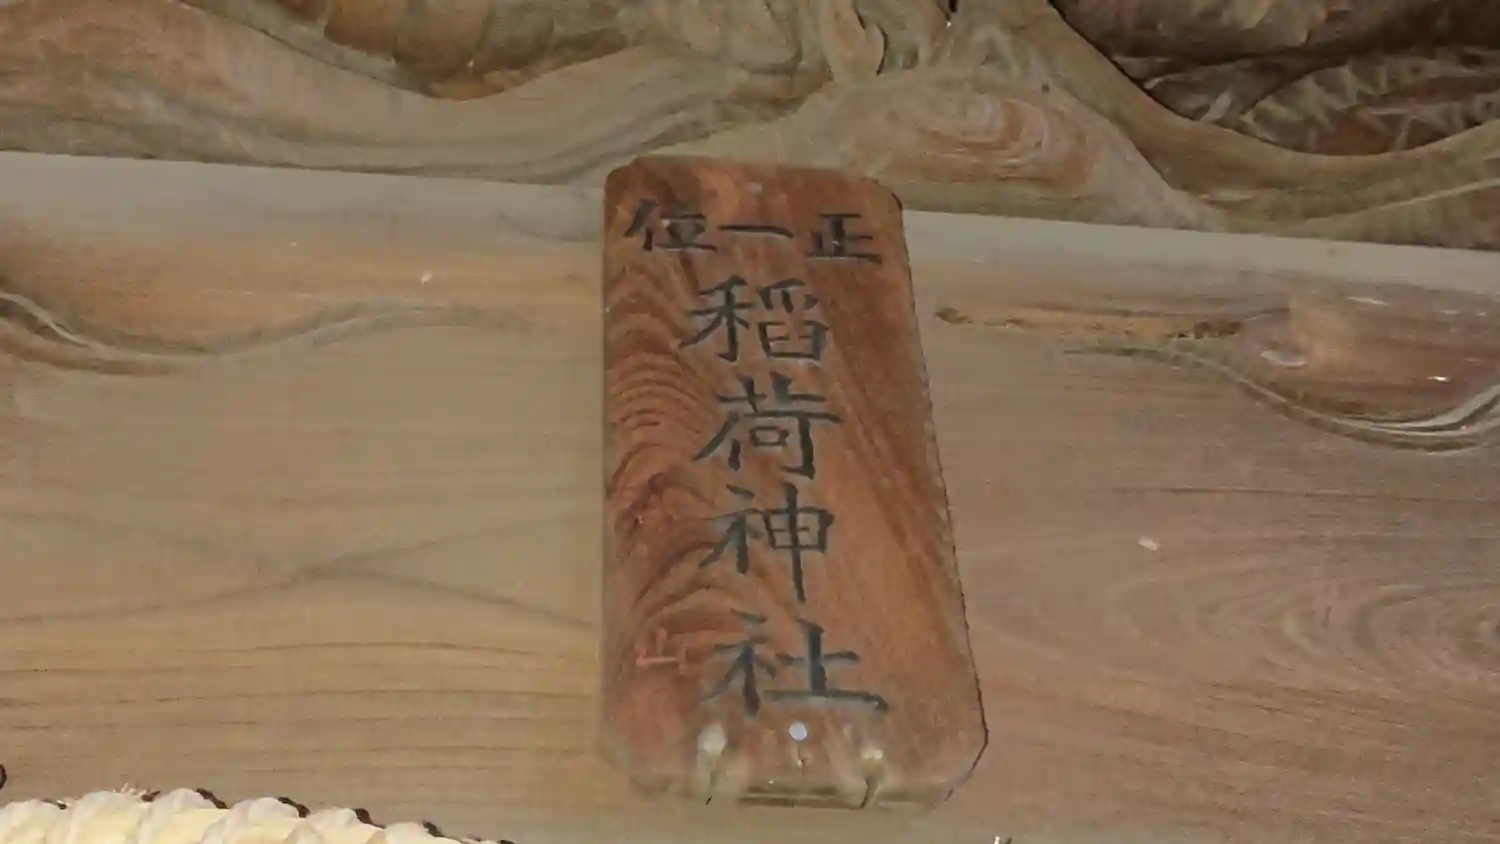 正一位
稲荷神社